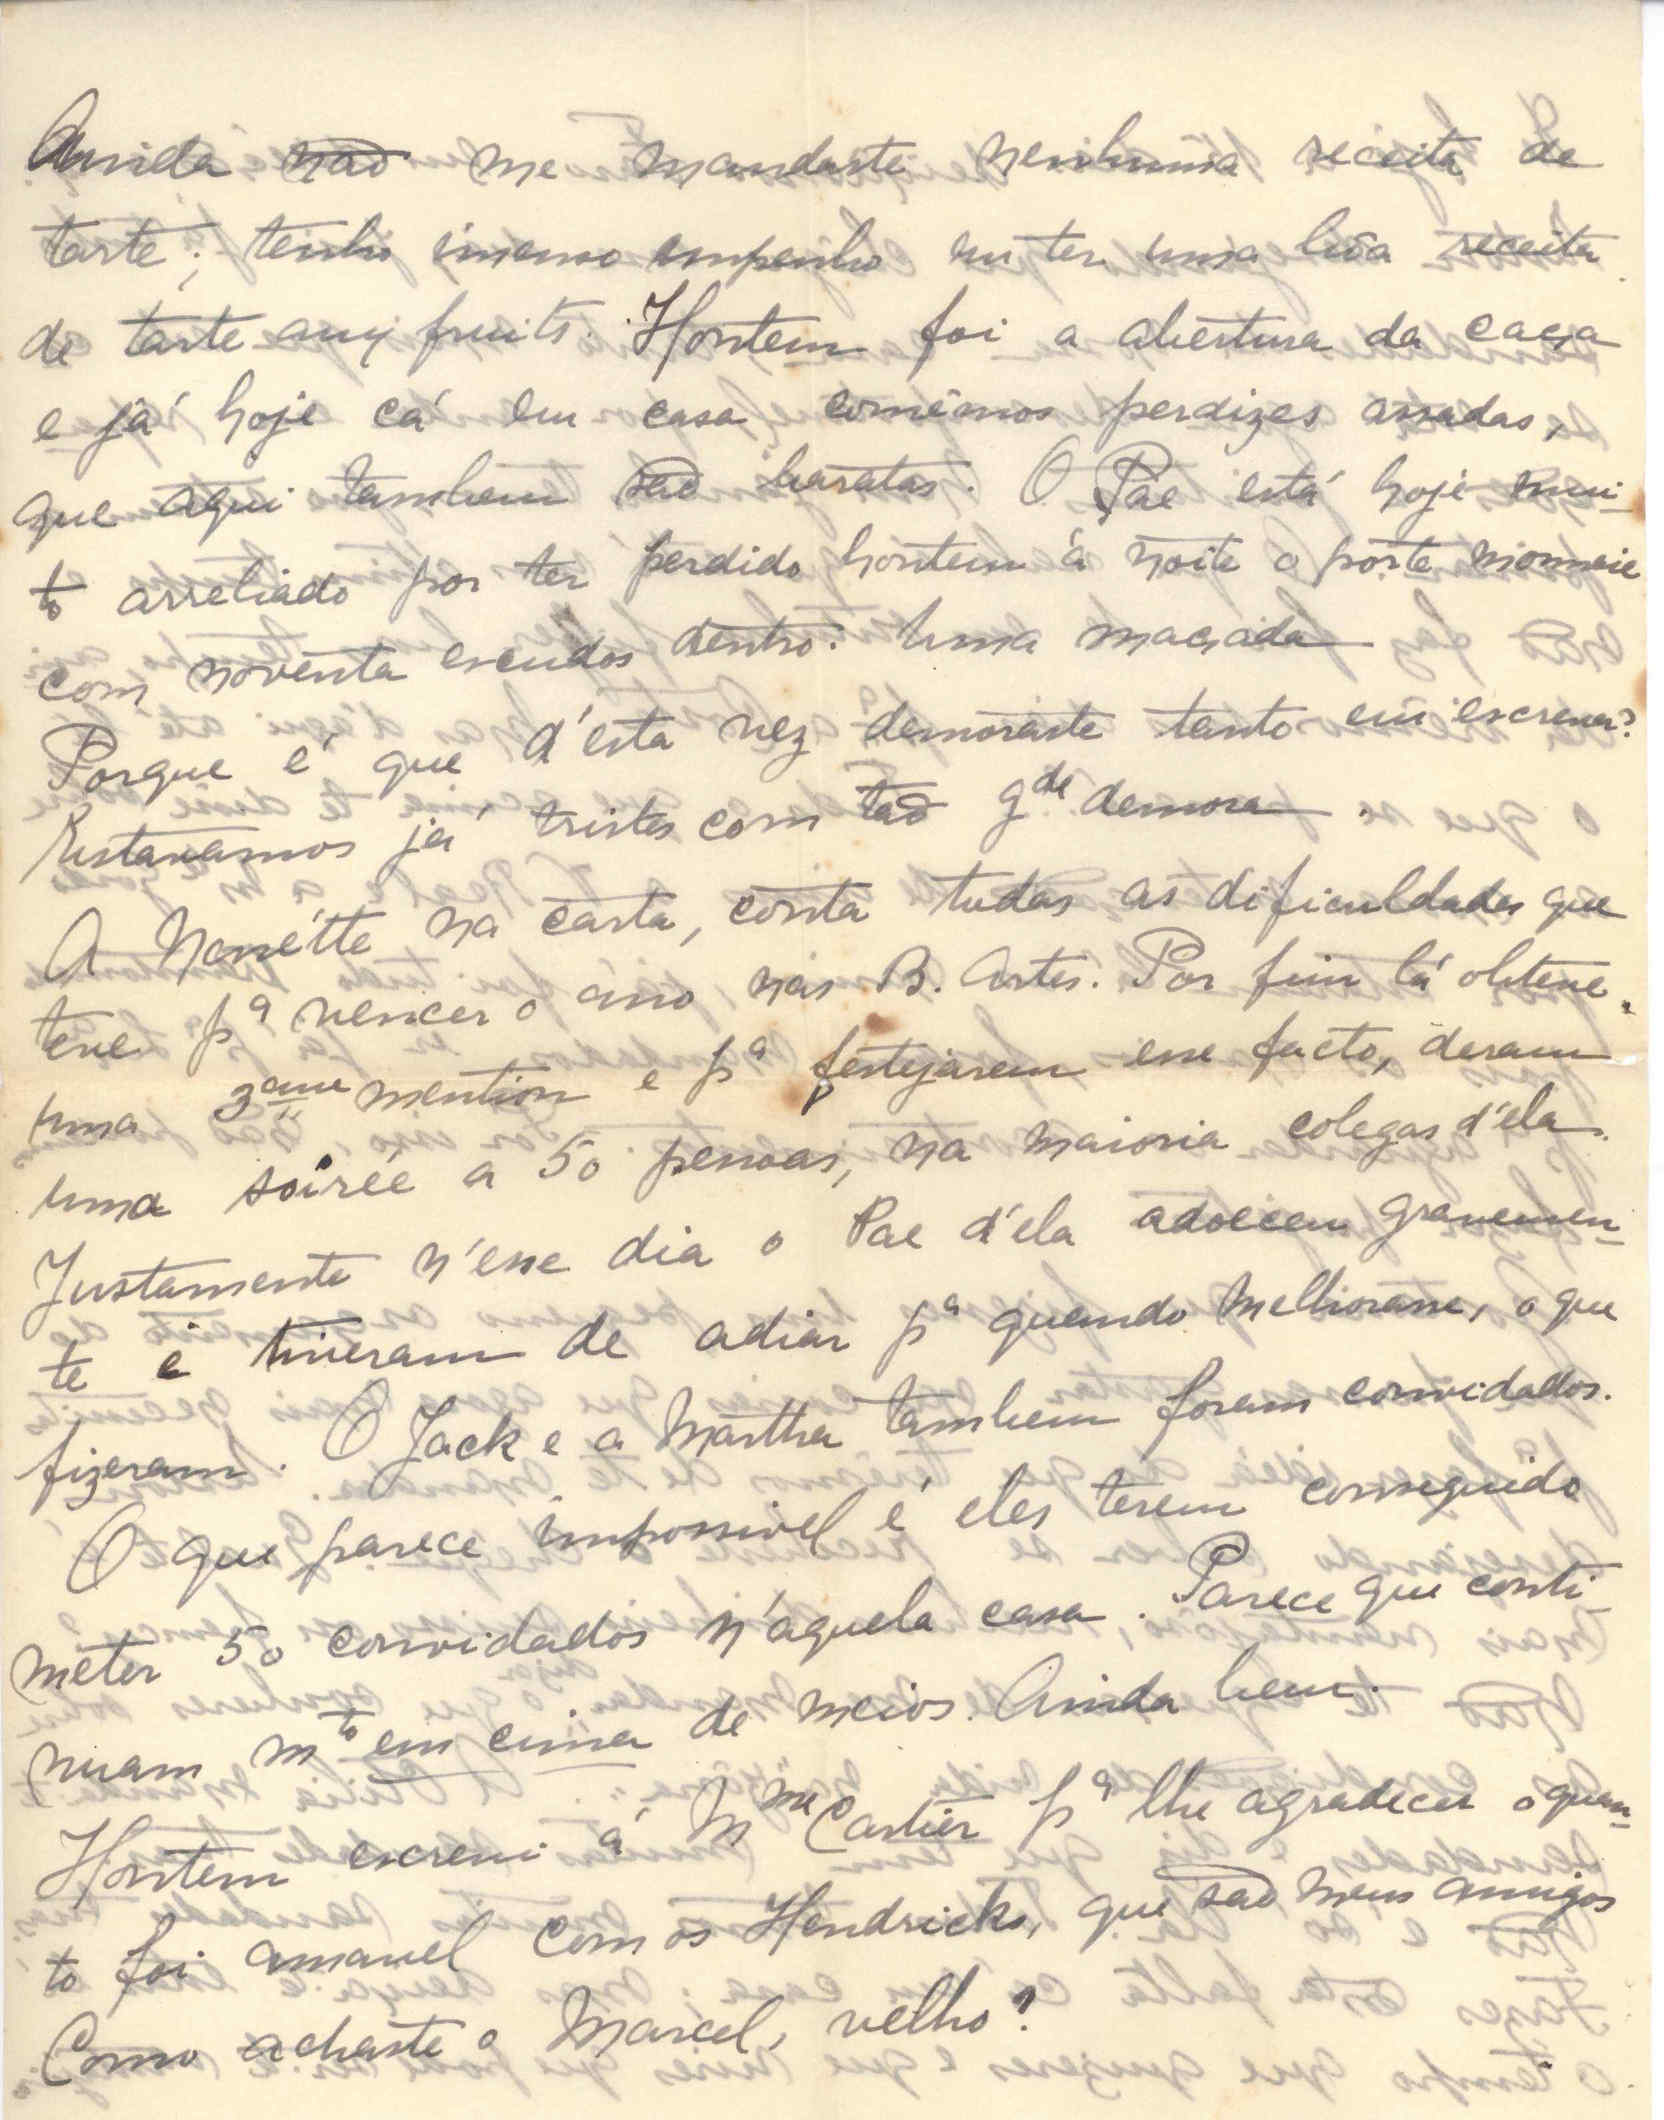 Ainda não me mandaste nenhuma receita de
tarte; tenho imenso empenho em ter uma bôa receita
de tarte aux fruits. Hontem foi a abertura da caça
e já hoje cá em casa comêmos perdizes assadas,
que aqui tambem são baratas. O Pae está hoje mui-
to arreliado por ter perdido hontem á noite o porte monnaie
com noventa escudos dentro. Uma maçada
Porque é que d'esta vez demoraste tanto em escrever?
Estavamos já tristes com tão gde demora.
A Nenétte na carta, conta todas as dificuldades que
teve pa vencer o ano nas B. Artes. Por fim lá obteve
uma 3eme mention e pa festejarem esse facto, deram
uma soirée a 50 pessoas, na maioria colegas d'ela.
Justamente n'esse dia o Pae d'ela adoeceu gravemen-
te e tiveram de adiar pa quando melhorasse, o que
fizeram. O Jack e a Martha tambem foram convidados.
O que parece impossivel é eles terem conseguido
meter 50 convidados n'aquela casa. Parece que conti-
nuam mto em cima de meios. Ainda bem.
Hontem escrevi á Mme Cartier pa lhe agradecer o quan-
to foi amavel com os Hendricks, que são meus amigos
Como achaste o Marcel, velho?